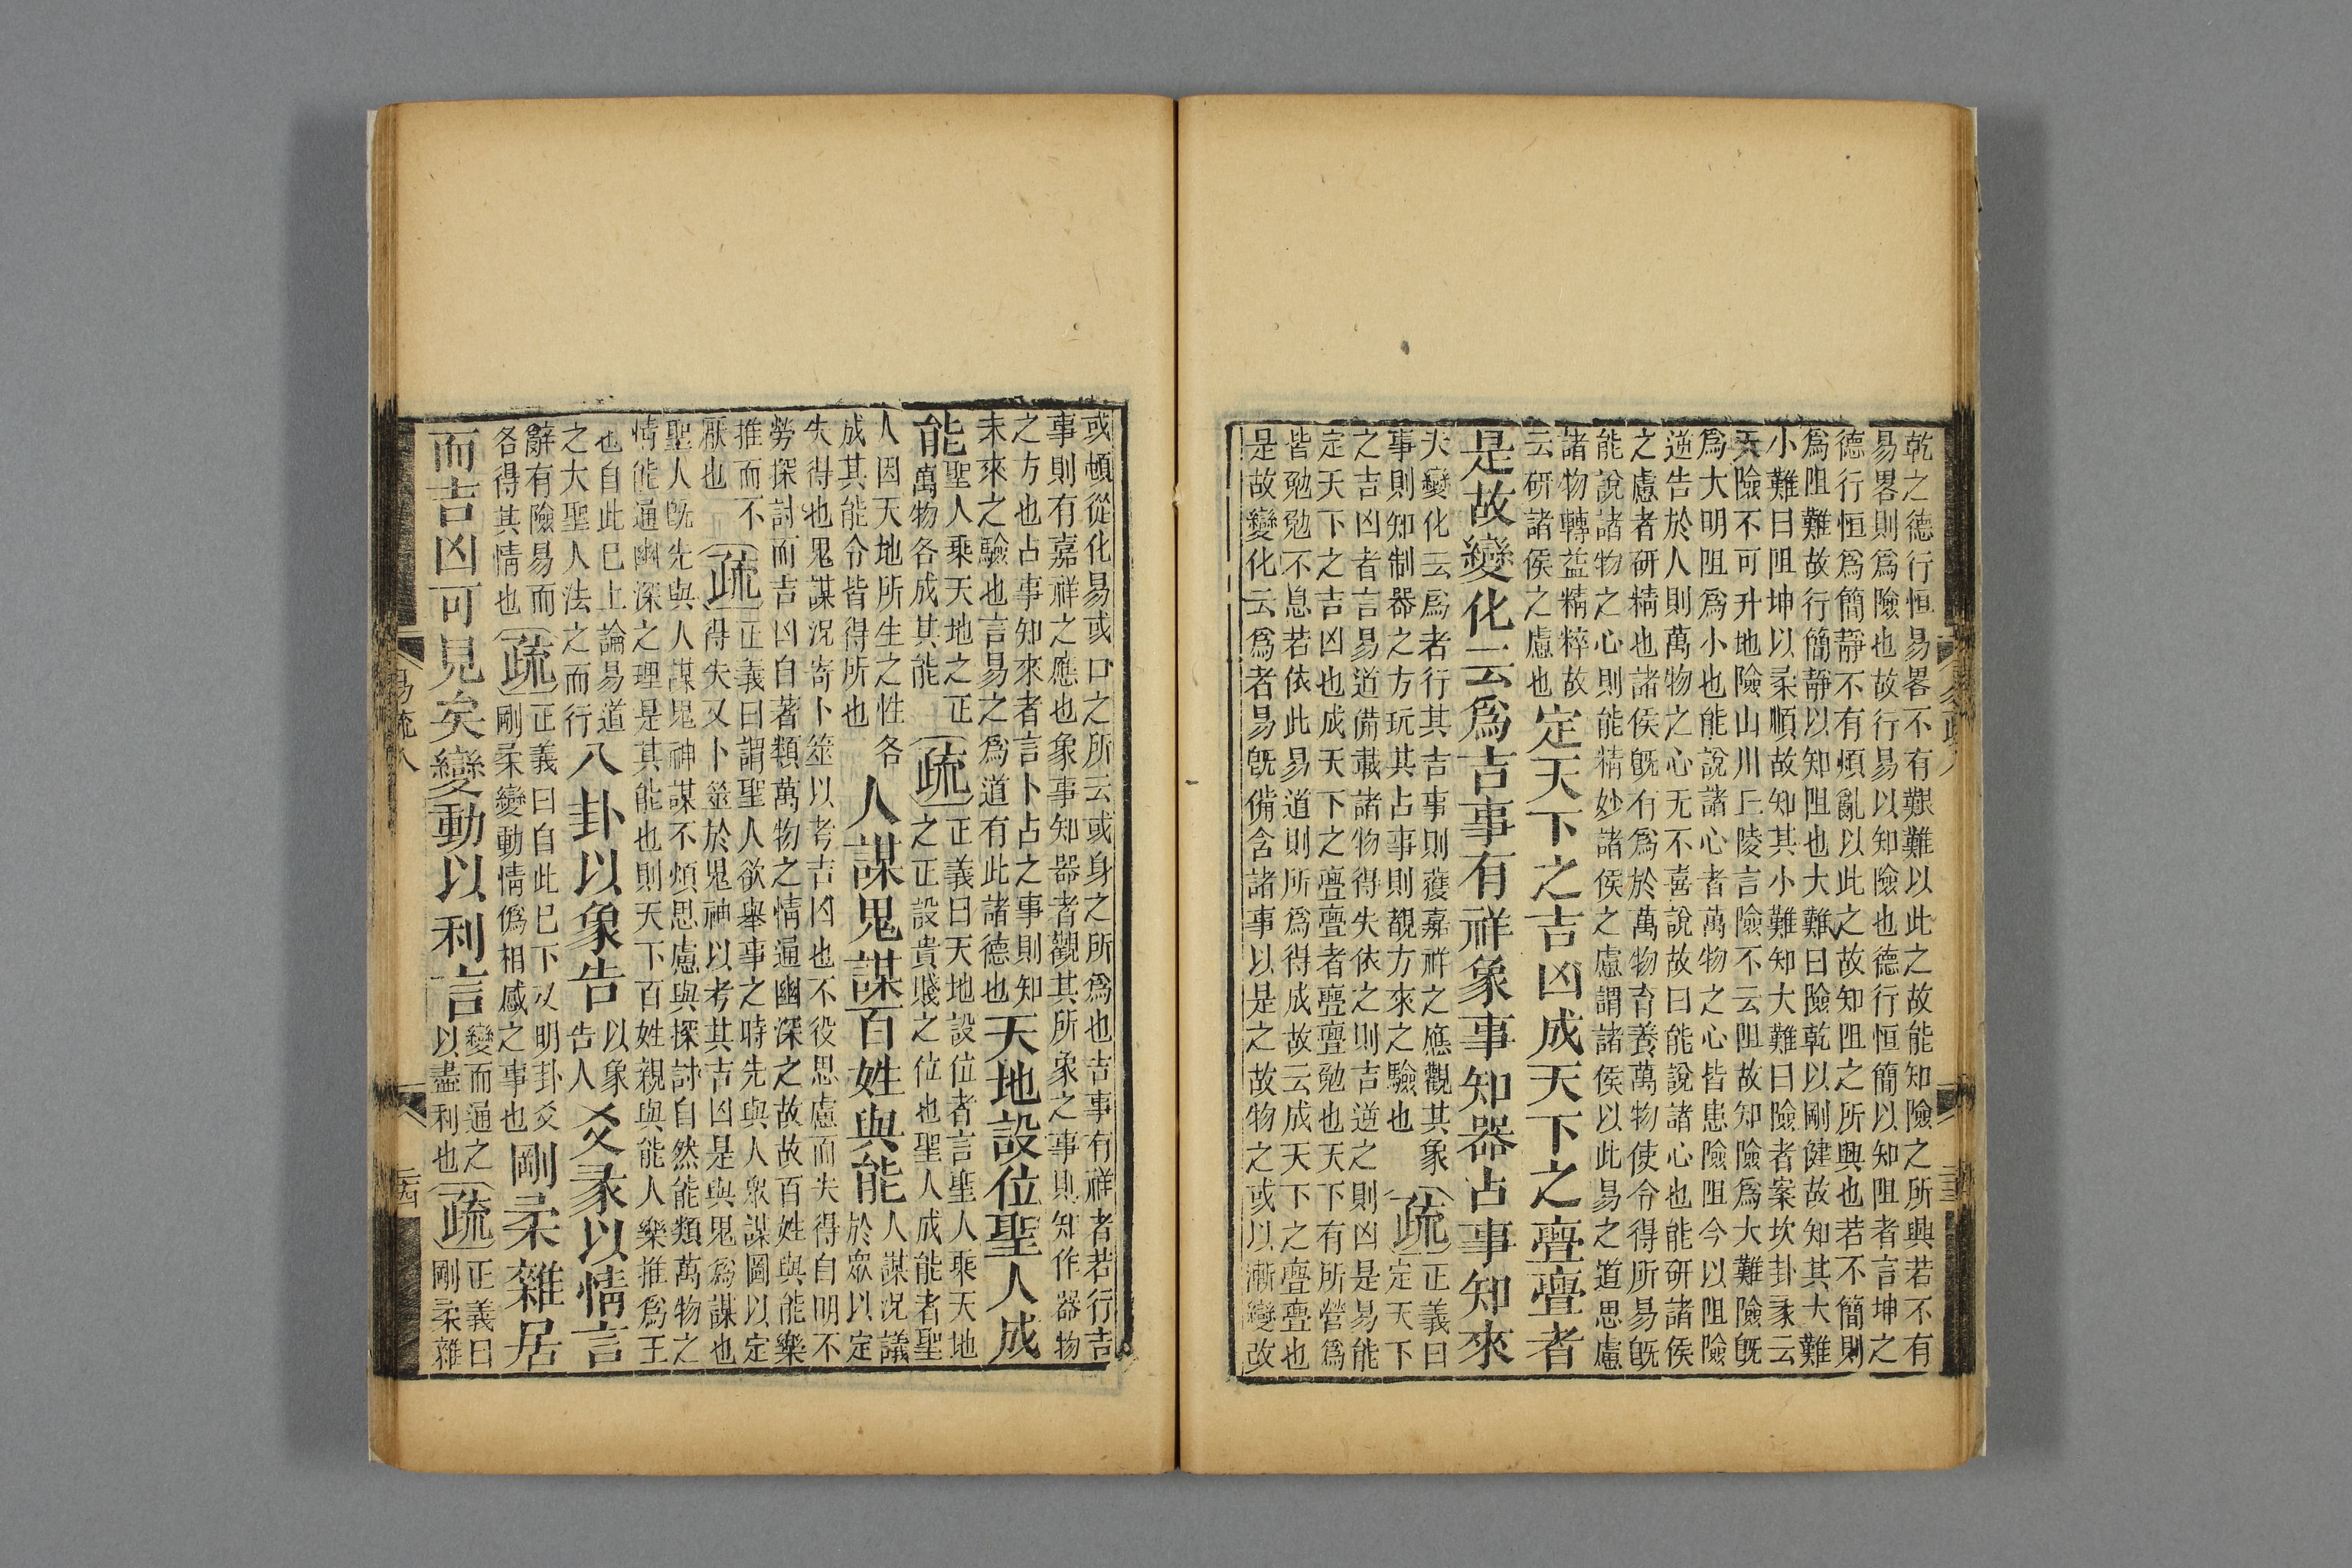 乾之德行恒易畧不有艱難以此之故能知險之所興若不有
易畧則爲險也故行易以知險也德行恒簡以知阻者言坤之
德行恒爲簡靜不有煩亂以此之故知阻之所興也若不簡則
爲阻難故行簡靜以知阻也大難曰險乾以剛健故知其大難
小難曰阻坤以柔順故知其小難知大難曰險者案坎卦彖云
天險不可升地險山川丘陵言險不云阻故知險爲大難險旣
爲大明阻爲小也能說諸心者萬物之心皆患險阻今以阻險
逆告於人則萬物之心无不喜說故曰能說諸心也能研諸侯
之慮者研精也諸侯旣有爲於萬物育養萬物使令得所易旣
能說諸物之心則能精妙諸侯之慮謂諸侯以此易之道思慮
諸物轉益精粹故
云研諸侯之慮也
定天下之吉凶成天下之亹亹者
是故變化云爲吉事有祥象事知器占事知來
夫變化云爲者行其吉事則獲嘉祥之應觀其象
事則知制器之方玩其占事則覩方來之驗也
疏
正義曰
定天下
之吉凶者言易道備載諸物得失依之則吉逆之則凶是易能
定天下之吉凶也成天下之亹亹者亹亹勉也天下有所營爲
皆勉勉不息若依此易道則所爲得成故云成天下之亹亹也
是故變化云爲者易旣備含諸事以是之故物之或以漸變改
或頓從化易或口之所云或身之所爲也吉事有祥者若行吉
事則有嘉祥之應也象事知器者觀其所象之事則知作器物
之方也占事知來者言卜占之事則知
未來之驗也言易之爲道有此諸德也
天地設位聖人成
能
聖人乘天地之正
萬物各成其能
疏
正義曰天地設位者言聖人乘天地
之正設貴賤之位也聖人成能者聖
人因天地所生之性各
成其能令皆得所也
人謀鬼謀百姓與能
人謀況議
於衆以定
失得也鬼謀況寄卜筮以考吉凶也不役思慮而失得自明不
勞探討而吉凶自著類萬物之情通幽深之故故百姓與能樂
推而不
厭也
疏
正義曰謂聖人欲舉事之時先與人衆謀圖以定
得失又卜筮於鬼神以考其吉凶是與鬼爲謀也
聖人旣先與人謀鬼神謀不煩思慮與探討自然能類萬物之
情能通幽深之理是其能也則天下百姓親與能人樂推爲王
也自此已上論易道
之大聖人法之而行
八卦以象告
以象
告人
爻彖以情言
辭有險易而
各得其情也
疏
正義曰自此已下又明卦爻
剛柔變動情僞相感之事也
剛柔雜居
而吉凶可見矣變動以利言
變而通之
以盡利也
疏
正義曰
剛柔雜
易疏八